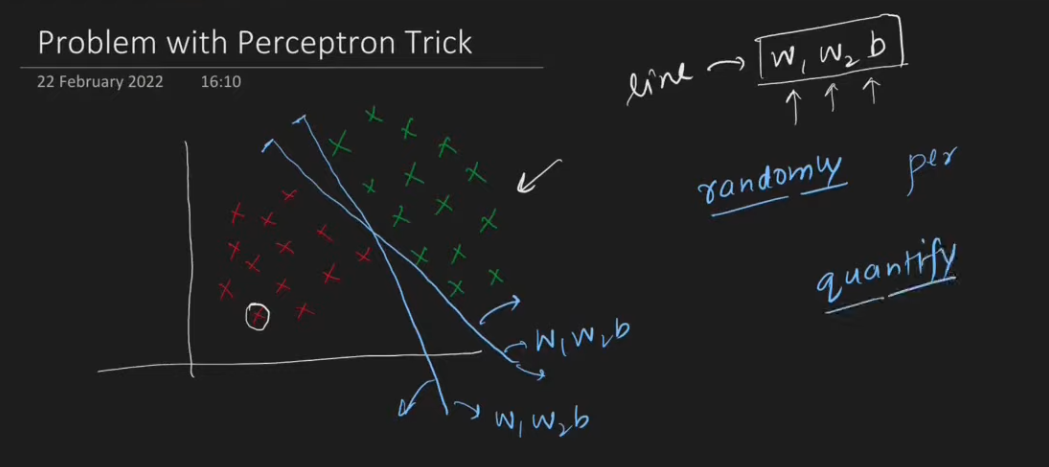 Problem with Perceptron Trick
22 February 2022 16:10
line → w₁ w₂ b
randomly per
quantify
w₁ w₂ b
w₁ w₂ b